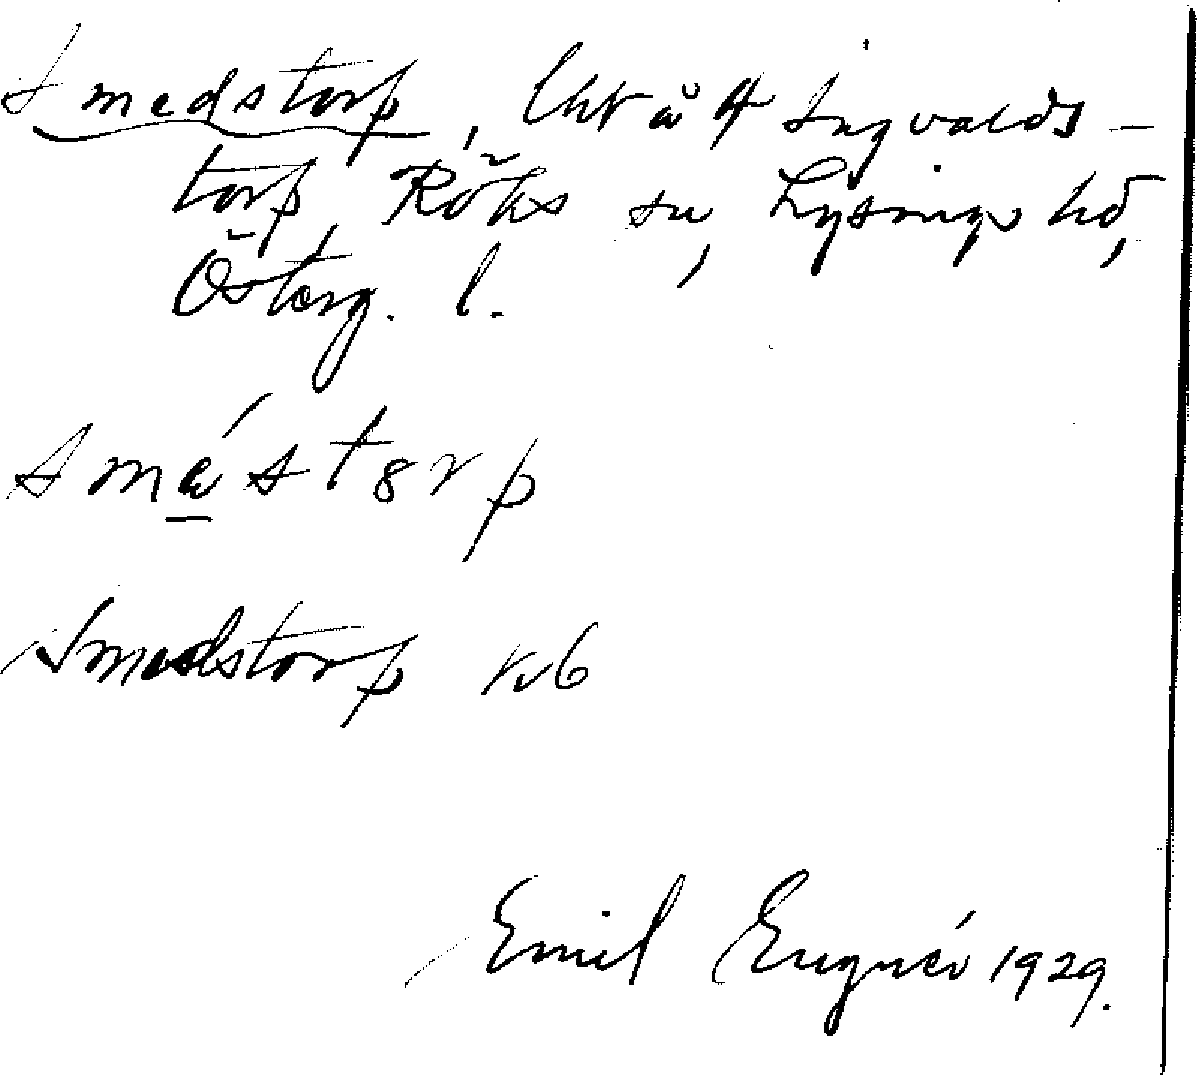 Smedstorp, lht å 4 Ingvalds-
torp, Röks sn, Lysings hd,
Österg. l.
smé̱storp
Smedstorp kb
Emil Engnér 1929.